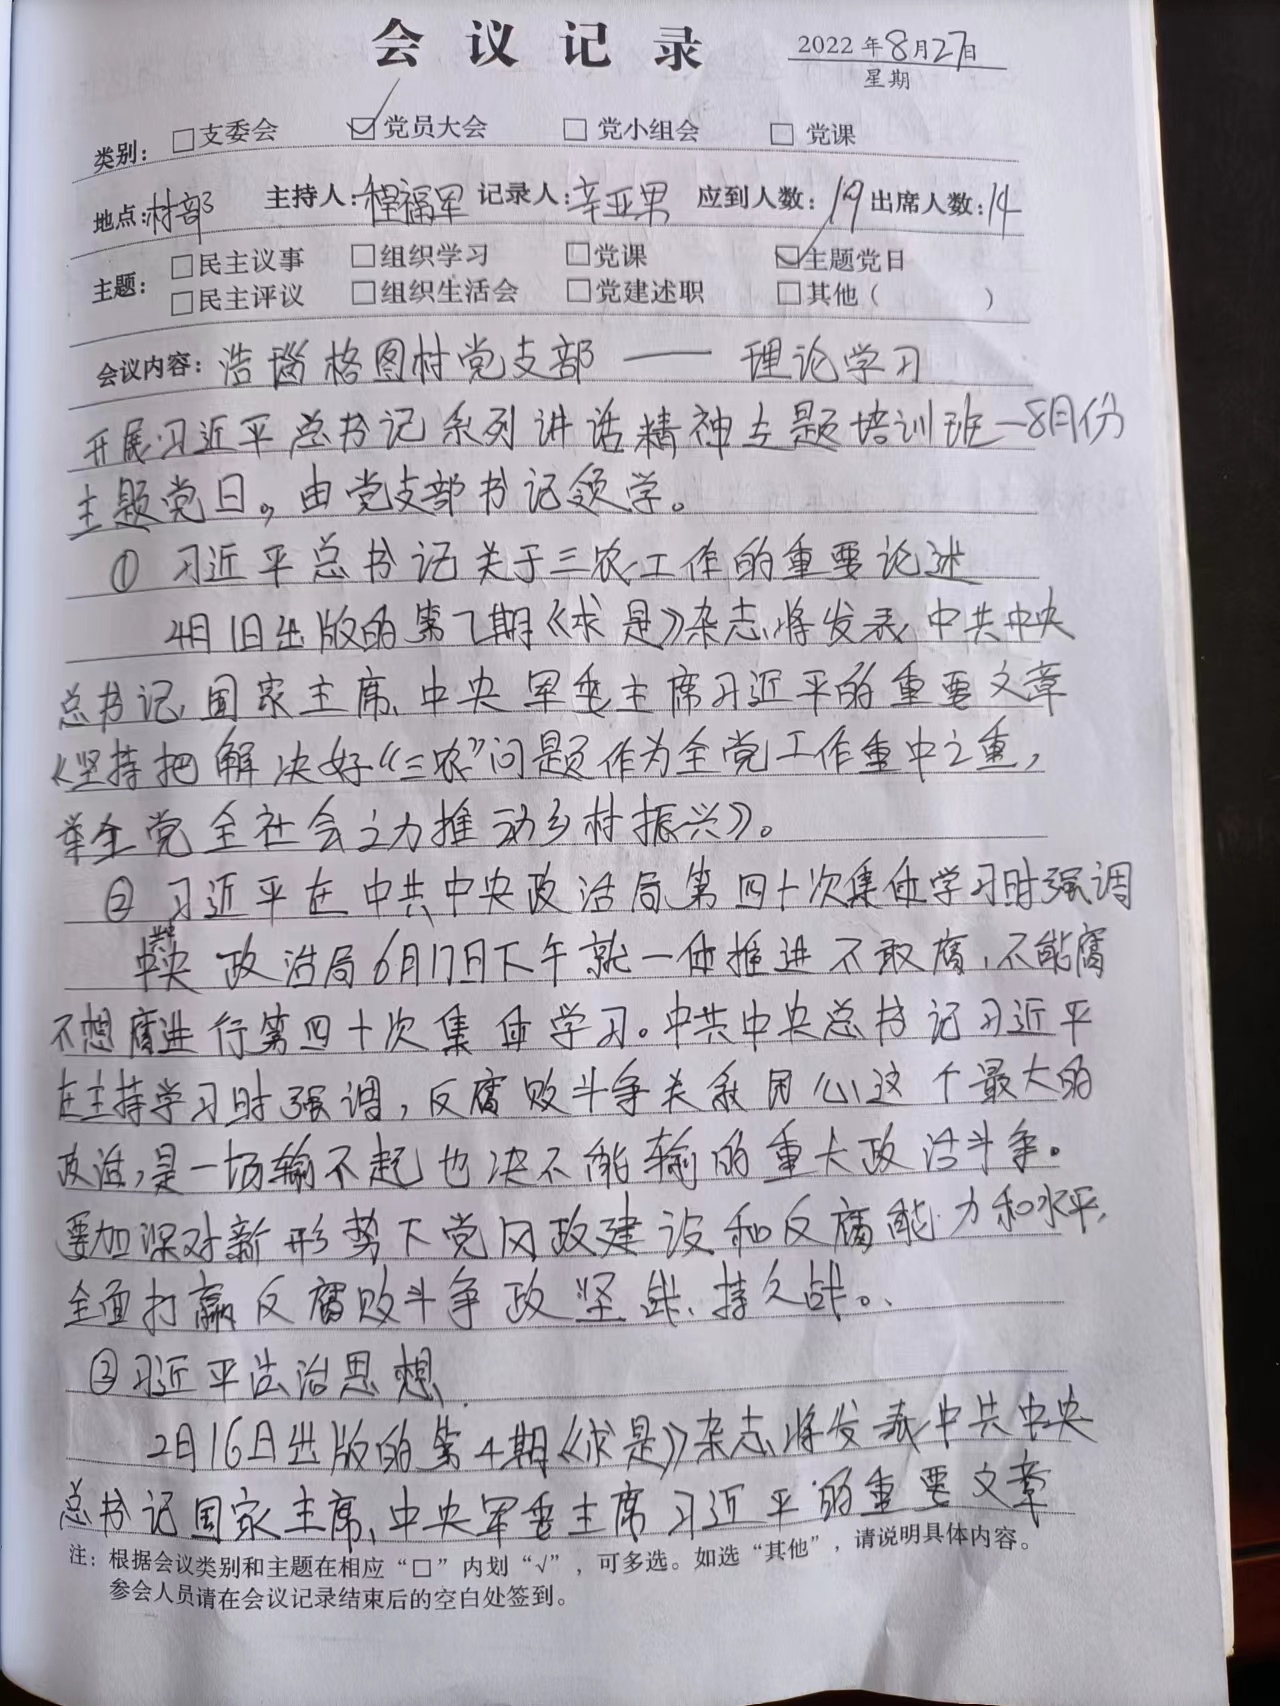 会议记录
2022年8月27日
星期
类别：□支委会 ☑党员大会 □党小组会 □党课
地点：村部 主持人：程福军 记录人：辛亚男 应到人数：19 出席人数：14
主题：□民主议事 □组织学习 □党课 ☑主题党日
□民主评议 □组织生活会 □党建述职 □其他（ ）
会议内容：浩瑙格图村党支部——理论学习
开展习近平总书记系列讲话精神主题培训班—8月份
主题党日。由党支部书记领学。
① 习近平总书记关于三农工作的重要论述
4月1日出版的第7期《求是》杂志将发表中共中央
总书记、国家主席、中央军委主席习近平的重要文章
《坚持把解决好“三农”问题作为全党工作重中之重，
举全党全社会之力推动乡村振兴》。
② 习近平在中共中央政治局第四十次集体学习时强调
中共中央政治局6月17日下午就一体推进不敢腐、不能腐
不想腐进行第四十次集体学习。中共中央总书记习近平
在主持学习时强调，反腐败斗争关系民心这个最大的
政治，是一场输不起也决不能输的重大政治斗争。
要加深对新形势下党风政建设和反腐能力和水平，
全面打赢反腐败斗争攻坚战、持久战。
③ 习近平法治思想
2月16日出版的第4期《求是》杂志将发表中共中央
总书记国家主席、中央军委主席习近平的重要文章
注：根据会议类别和主题在相应“□”内划“√”，可多选。如选“其他”，请说明具体内容。
参会人员请在会议记录结束后的空白处签到。